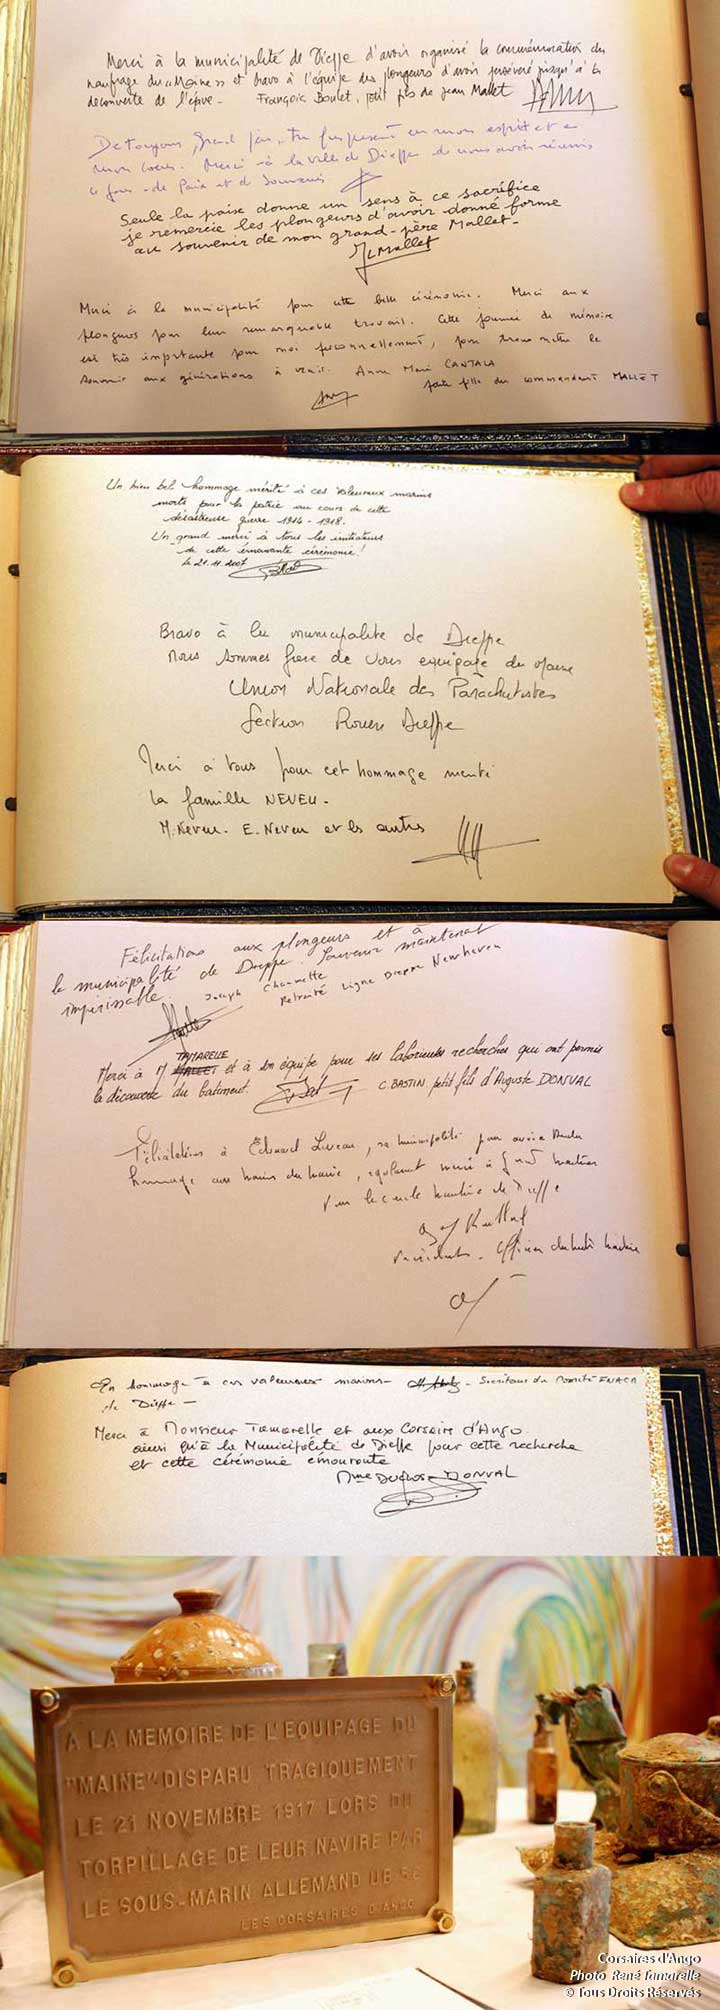 Merci à la municipalité de Dieppe d'avoir organisé la commémoration du
naufrage du "Maine" et bravo à l'équipe des plongeurs d'avoir persévéré jusqu'à la
découverte de l'épave. François Boulet, petit fils de Jean Mallet
De toujours, Grand père, Tu fus présent en mon esprit et en
mon coeur. Merci à la ville de Dieppe de nous avoir réunis
ce jour de Paix et de Souvenir
Seule la paix donne un sens à ce sacrifice
je remercie les plongeurs d'avoir donné forme
au souvenir de mon grand-père Mallet-
Mallet
Merci à la municipalité pour cette belle cérémonie. Merci aux
plongeurs pour leur remarquable travail. Cette journée de mémoire
est très importante pour moi personnellement, pour transmettre le
souvenir aux générations à venir. Anne Marie CANTALA
petite fille du commandant MALLET
Un bien bel hommage mérité à ces valeureux marins
morts pour la patrie au cours de cette
désastreuse guerre 1914-1918.
Un grand merci à tous les initiateurs
de cette émouvante cérémonie!
le 21.11.2007
Bravo à la municipalité de Dieppe
nous sommes fiere de vous equipage du Maine
Union Nationale des Parachutistes
Section Rouen Dieppe
Merci à vous pour cet hommage mérité
la famille NEVEU-
M. Neveu. E. Neveu et les autres
Félicitations aux plongeurs et à
la municipalité de Dieppe. Souvenir maintenant
impérissable. Joseph Chaumette
Retraité Ligne Dieppe Newhaven
TAMARELLE
Merci à M MALLET et à son équipe pour ses laborieuses recherches qui ont permis
la découverte du batiment. C. BASTIN petit fils d'Auguste DONVAL
Félicitations à Edouard Leveau, sa municipalité pour avoir rendu
hommage aux marins du maine, également merci à
Pour le cercle maritime de Dieppe
Président - Officier du mérite maritime
En hommage à ces valeureux marins - Secrétaire du Comité FNACA
de Dieppe -
Merci à Monsieur Tamarelle et aux Corsaire d'Ango
ainsi qu'à la Municipalité de Dieppe pour cette recherche
et cette cérémonie émouvante
Mme DONVAL
A LA MEMOIRE DE L'EQUIPAGE DU
"MAINE" DISPARU TRAGIQUEMENT
LE 21 NOVEMBRE 1917 LORS DU
TORPILLAGE DE LEUR NAVIRE PAR
LE SOUS-MARIN ALLEMAND UB 56
LES CORSAIRES D'ANGO
Corsaires d'Ango
Photo René Tamarelle
© Tous Droits Réservés